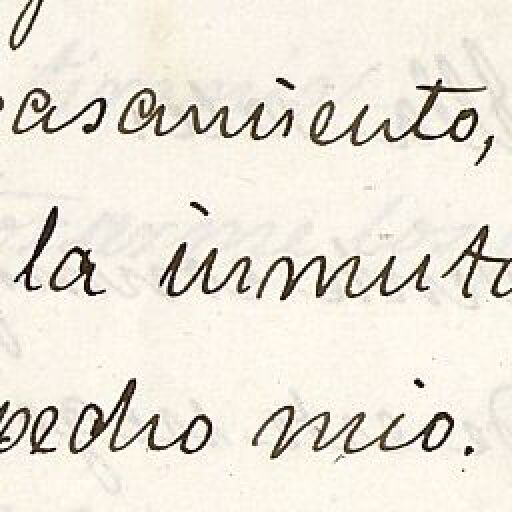 casamiento,
la inmuta
pecho mio.